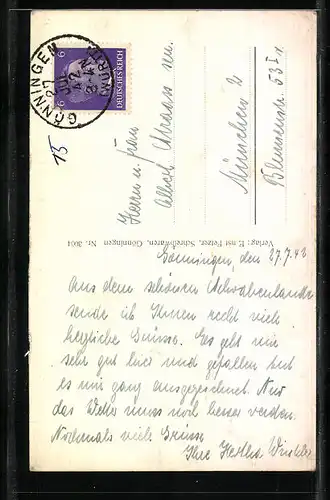 GÖNNINGEN
27 JUL 42
WÜRTT
DEUTSCHES REICH
6 6
15
Herrn u. Frau
Albert Strauss sen.
München 2
Blumenstr. 53 I r.
Verlag: Ernst Fetzer, Schreibwaren, Gönningen Nr. 3004
Gönningen, den 27.7.42
Aus dem schönen Schwabenlande
sende ich Ihnen recht viele
herzliche Grüsse. Es geht mir
sehr gut hier und gefallen tut
es mir ganz ausgezeichnet. Nur
das Wetter muss noch besser werden.
Nochmals viele Grüsse
Ihre Hertha